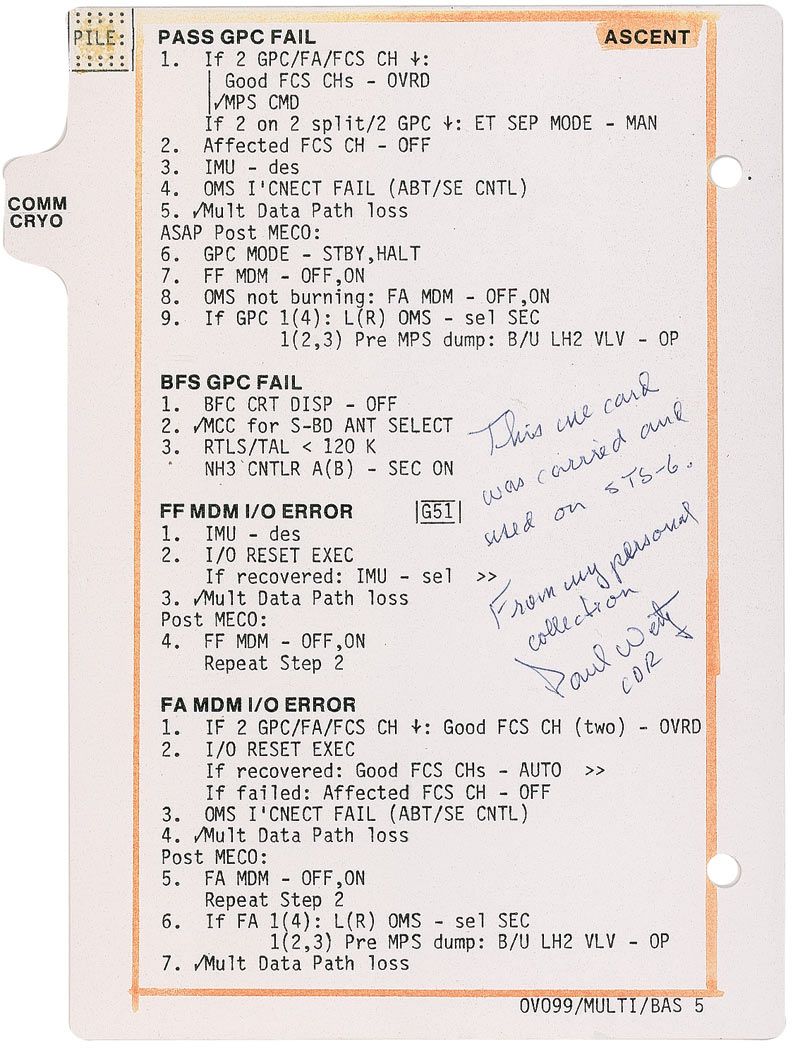 PILE:
PASS GPC FAIL
ASCENT
1. If 2 GPC/FA/FCS CH ↓:
Good FCS CHs - OVRD
✓MPS CMD
If 2 on 2 split/2 GPC ↓: ET SEP MODE - MAN
2. Affected FCS CH - OFF
3. IMU - des
4. OMS I'CNECT FAIL (ABT/SE CNTL)
5. ✓Mult Data Path loss
ASAP Post MECO:
6. GPC MODE - STBY,HALT
7. FF MDM - OFF,ON
8. OMS not burning: FA MDM - OFF,ON
9. If GPC 1(4): L(R) OMS - sel SEC
1(2,3) Pre MPS dump: B/U LH2 VLV - OP
COMM
CRYO
BFS GPC FAIL
1. BFC CRT DISP - OFF
2. ✓MCC for S-BD ANT SELECT
3. RTLS/TAL < 120 K
NH3 CNTLR A(B) - SEC ON
FF MDM I/O ERROR |G51|
1. IMU - des
2. I/O RESET EXEC
If recovered: IMU - sel >>
3. ✓Mult Data Path loss
Post MECO:
4. FF MDM - OFF,ON
Repeat Step 2
This cue card
was carried and
used on STS-6.
From my personal
collection
Paul Weitz
CDR
FA MDM I/O ERROR
1. IF 2 GPC/FA/FCS CH ↓: Good FCS CH (two) - OVRD
2. I/O RESET EXEC
If recovered: Good FCS CHs - AUTO >>
If failed: Affected FCS CH - OFF
3. OMS I'CNECT FAIL (ABT/SE CNTL)
4. ✓Mult Data Path loss
Post MECO:
5. FA MDM - OFF,ON
Repeat Step 2
6. If FA 1(4): L(R) OMS - sel SEC
1(2,3) Pre MPS dump: B/U LH2 VLV - OP
7. ✓Mult Data Path loss
OVO99/MULTI/BAS 5